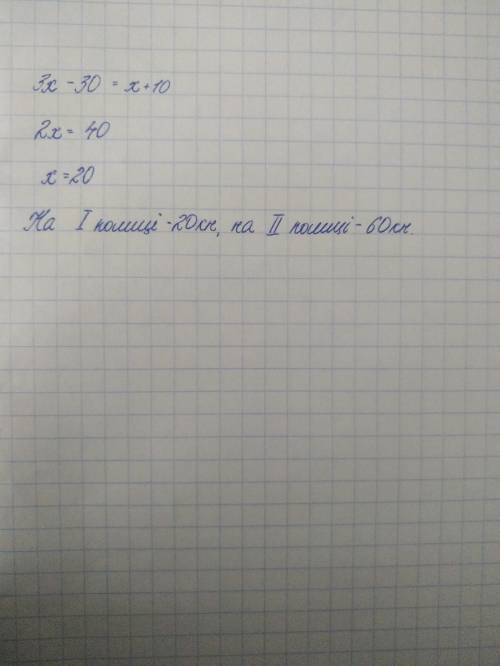 3x - 30 = x + 10
2x = 40
x = 20
На I полиці - 20 кн, на II полиці - 60 кн.